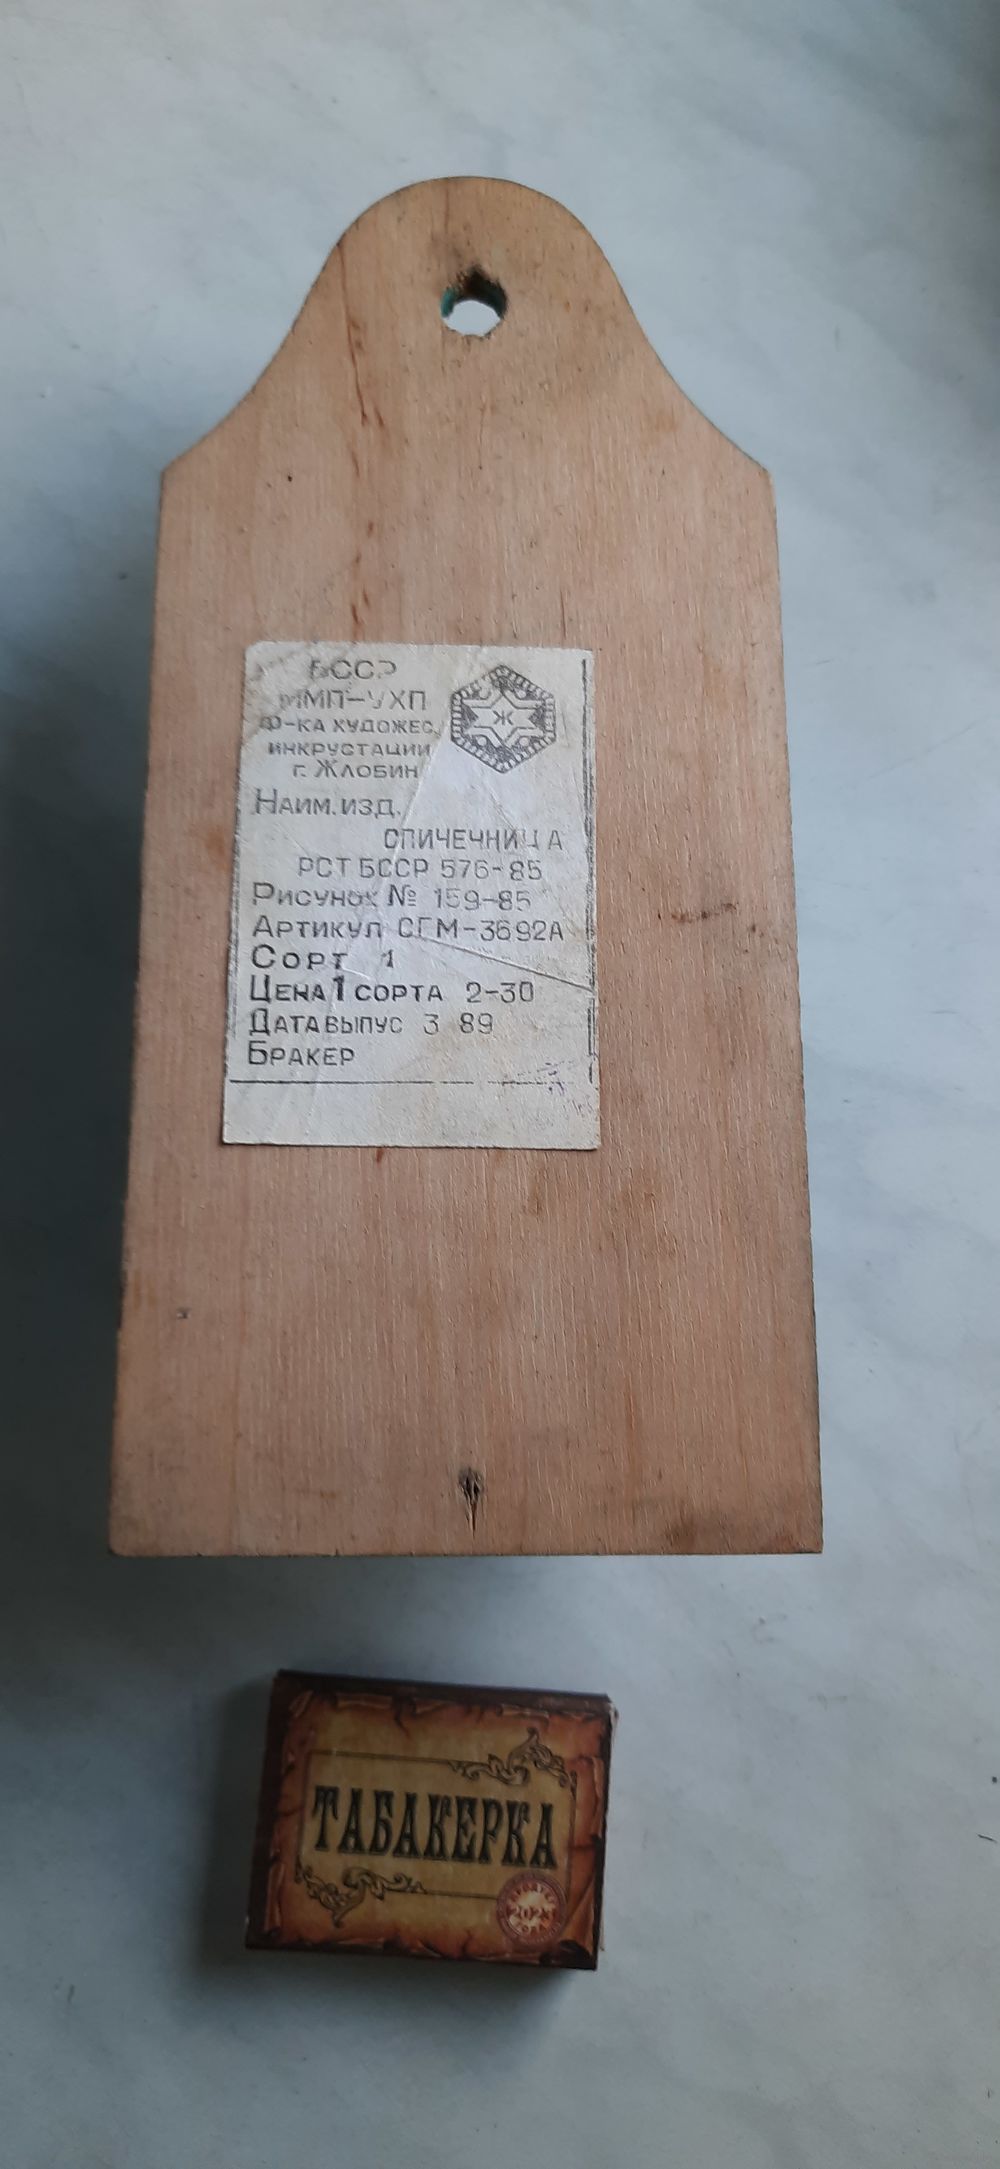 БССР
ММП-УХП
Ф-КА ХУДОЖЕС.
ИНКРУСТАЦИИ
г. ЖЛОБИН
Ж
НАИМ. ИЗД.
СПИЧЕЧНИЦА
РСТ БССР 576-85
РИСУНОК № 159-85
АРТИКУЛ СГМ-3692А
СОРТ 1
ЦЕНА 1 СОРТА 2-30
ДАТА ВЫПУС 3 89
БРАКЕР
ТАБАКЕРКА